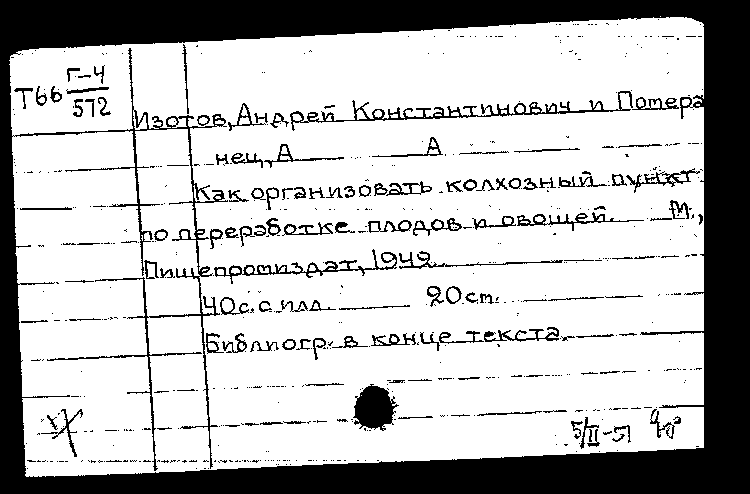 Т66 Г-4/572
Изотов, Андрей Константинович и Потера
нец, А А
Как организовать колхозный пункт
по переработке плодов и овощей. М.,
Пищепромиздат, 1949.
40с. с илл. 20 см.
Библиогр. в конце текста.
5/II-51